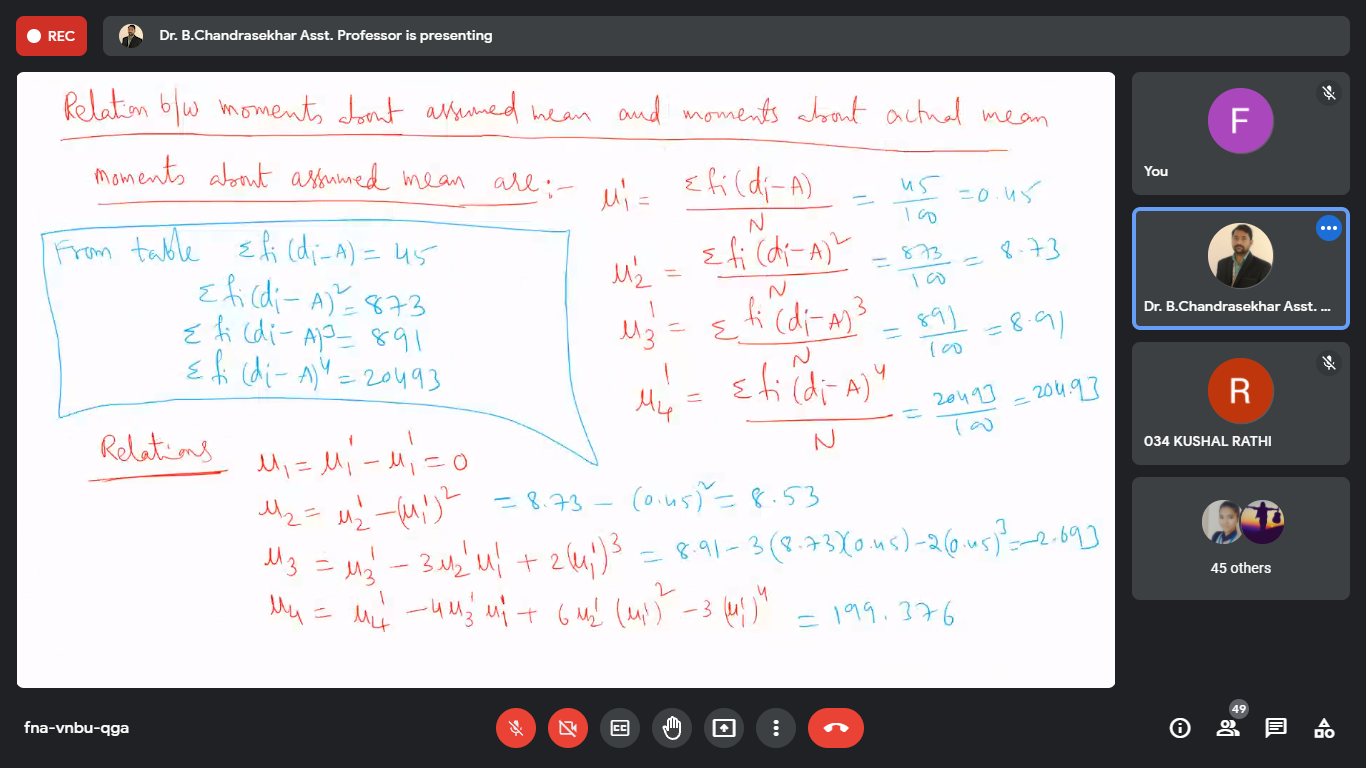 REC
Dr. B.Chandrasekhar Asst. Professor is presenting
Relation b/w moments about assumed mean and moments about actual mean
moments about assumed mean are:-
μ₁' = Σfi(di-A)/N = 45/100 = 0.45
From table Σfi(di-A) = 45
μ₂' = Σfi(di-A)²/N = 873/100 = 8.73
Σfi(di-A)² = 873
μ₃' = Σfi(di-A)³/N = 891/100 = 8.91
Σfi(di-A)³ = 891
μ₄' = Σfi(di-A)⁴/N = 20493/100 = 204.93
Σfi(di-A)⁴ = 20493
Relations
μ₁ = μ₁' - μ₁' = 0
μ₂ = μ₂' - (μ₁')² = 8.73 - (0.45)² = 8.53
μ₃ = μ₃' - 3μ₂'μ₁' + 2(μ₁')³ = 8.91 - 3(8.73)(0.45) - 2(0.45)³ = -2.693
μ₄ = μ₄' - 4μ₃'μ₁' + 6μ₂'(μ₁')² - 3(μ₁')⁴ = 199.376
F
You
Dr. B.Chandrasekhar Asst. ...
R
034 KUSHAL RATHI
45 others
fna-vnbu-qga
CC
49